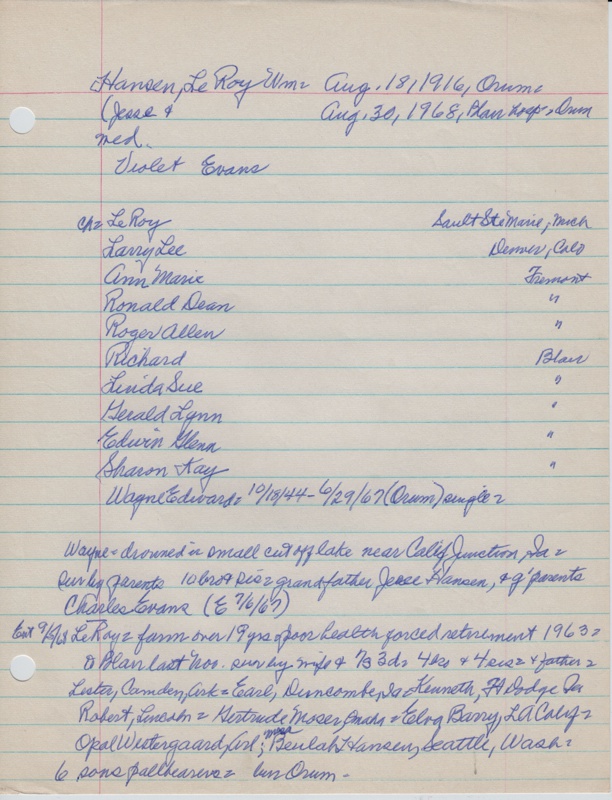 Hansen, Le Roy Wm= Aug. 18, 1916, Orum=
(Jesse & Aug. 30, 1968, Blair hosp= Orum
med.
Violet Evans
ch= LeRoy Sault Ste Marie, Mich
Larry Lee Denver, Colo
Ann Marie Fremont
Ronald Dean "
Roger Allen "
Richard Blair
Linda Sue "
Gerald Lynn "
Edwin Glenn "
Sharon Kay "
Wayne Edward= 10/18/44 - 6/29/67 (Orum) single=
Wayne= drowned in small cut off lake near Calif Junction, Ia=
sur by parents 10 bro & sis= grandfather Jesse Hansen, & g' parents
Charles Evans (E 7/6/67)
Ent LeRoy= farm over 19 yrs= poor health forced retirement 1963=
Blair last Nov. sur by wife & 7s 3ds 4 brs & 4 sis= & father=
Lester, Camden, Ark= Earl, Duncombe, Ia= Kenneth, Ft Dodge Ia
Robert, Lincoln= Gertrude Moser, Omaha= Barry, LA Calif=
Opal Westergaard, Arl; Mrs Beulah Hansen, Seattle, Wash=
6 sons pallbearers= bur Orum-